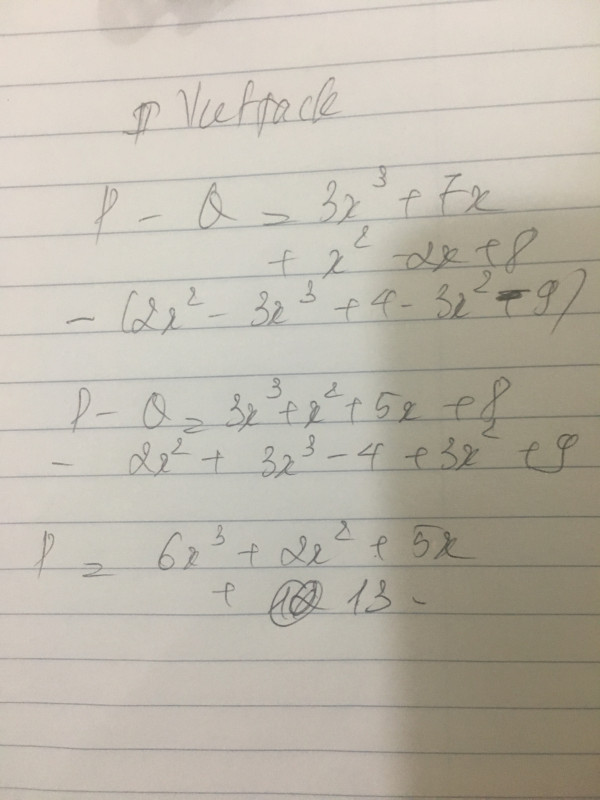 P - Q = 3x³ + 7x
+ x² - 2x + 8
- (2x² - 3x³ + 4 - 3x² - 9)
P - Q = 3x³ + x² + 5x + 8
- 2x² + 3x³ - 4 + 3x² + 9
P = 6x³ + 2x² + 5x
+ 13 -